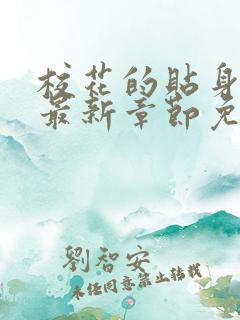 校花的貼身
最新章節免
劉智安
未经同意禁止转载